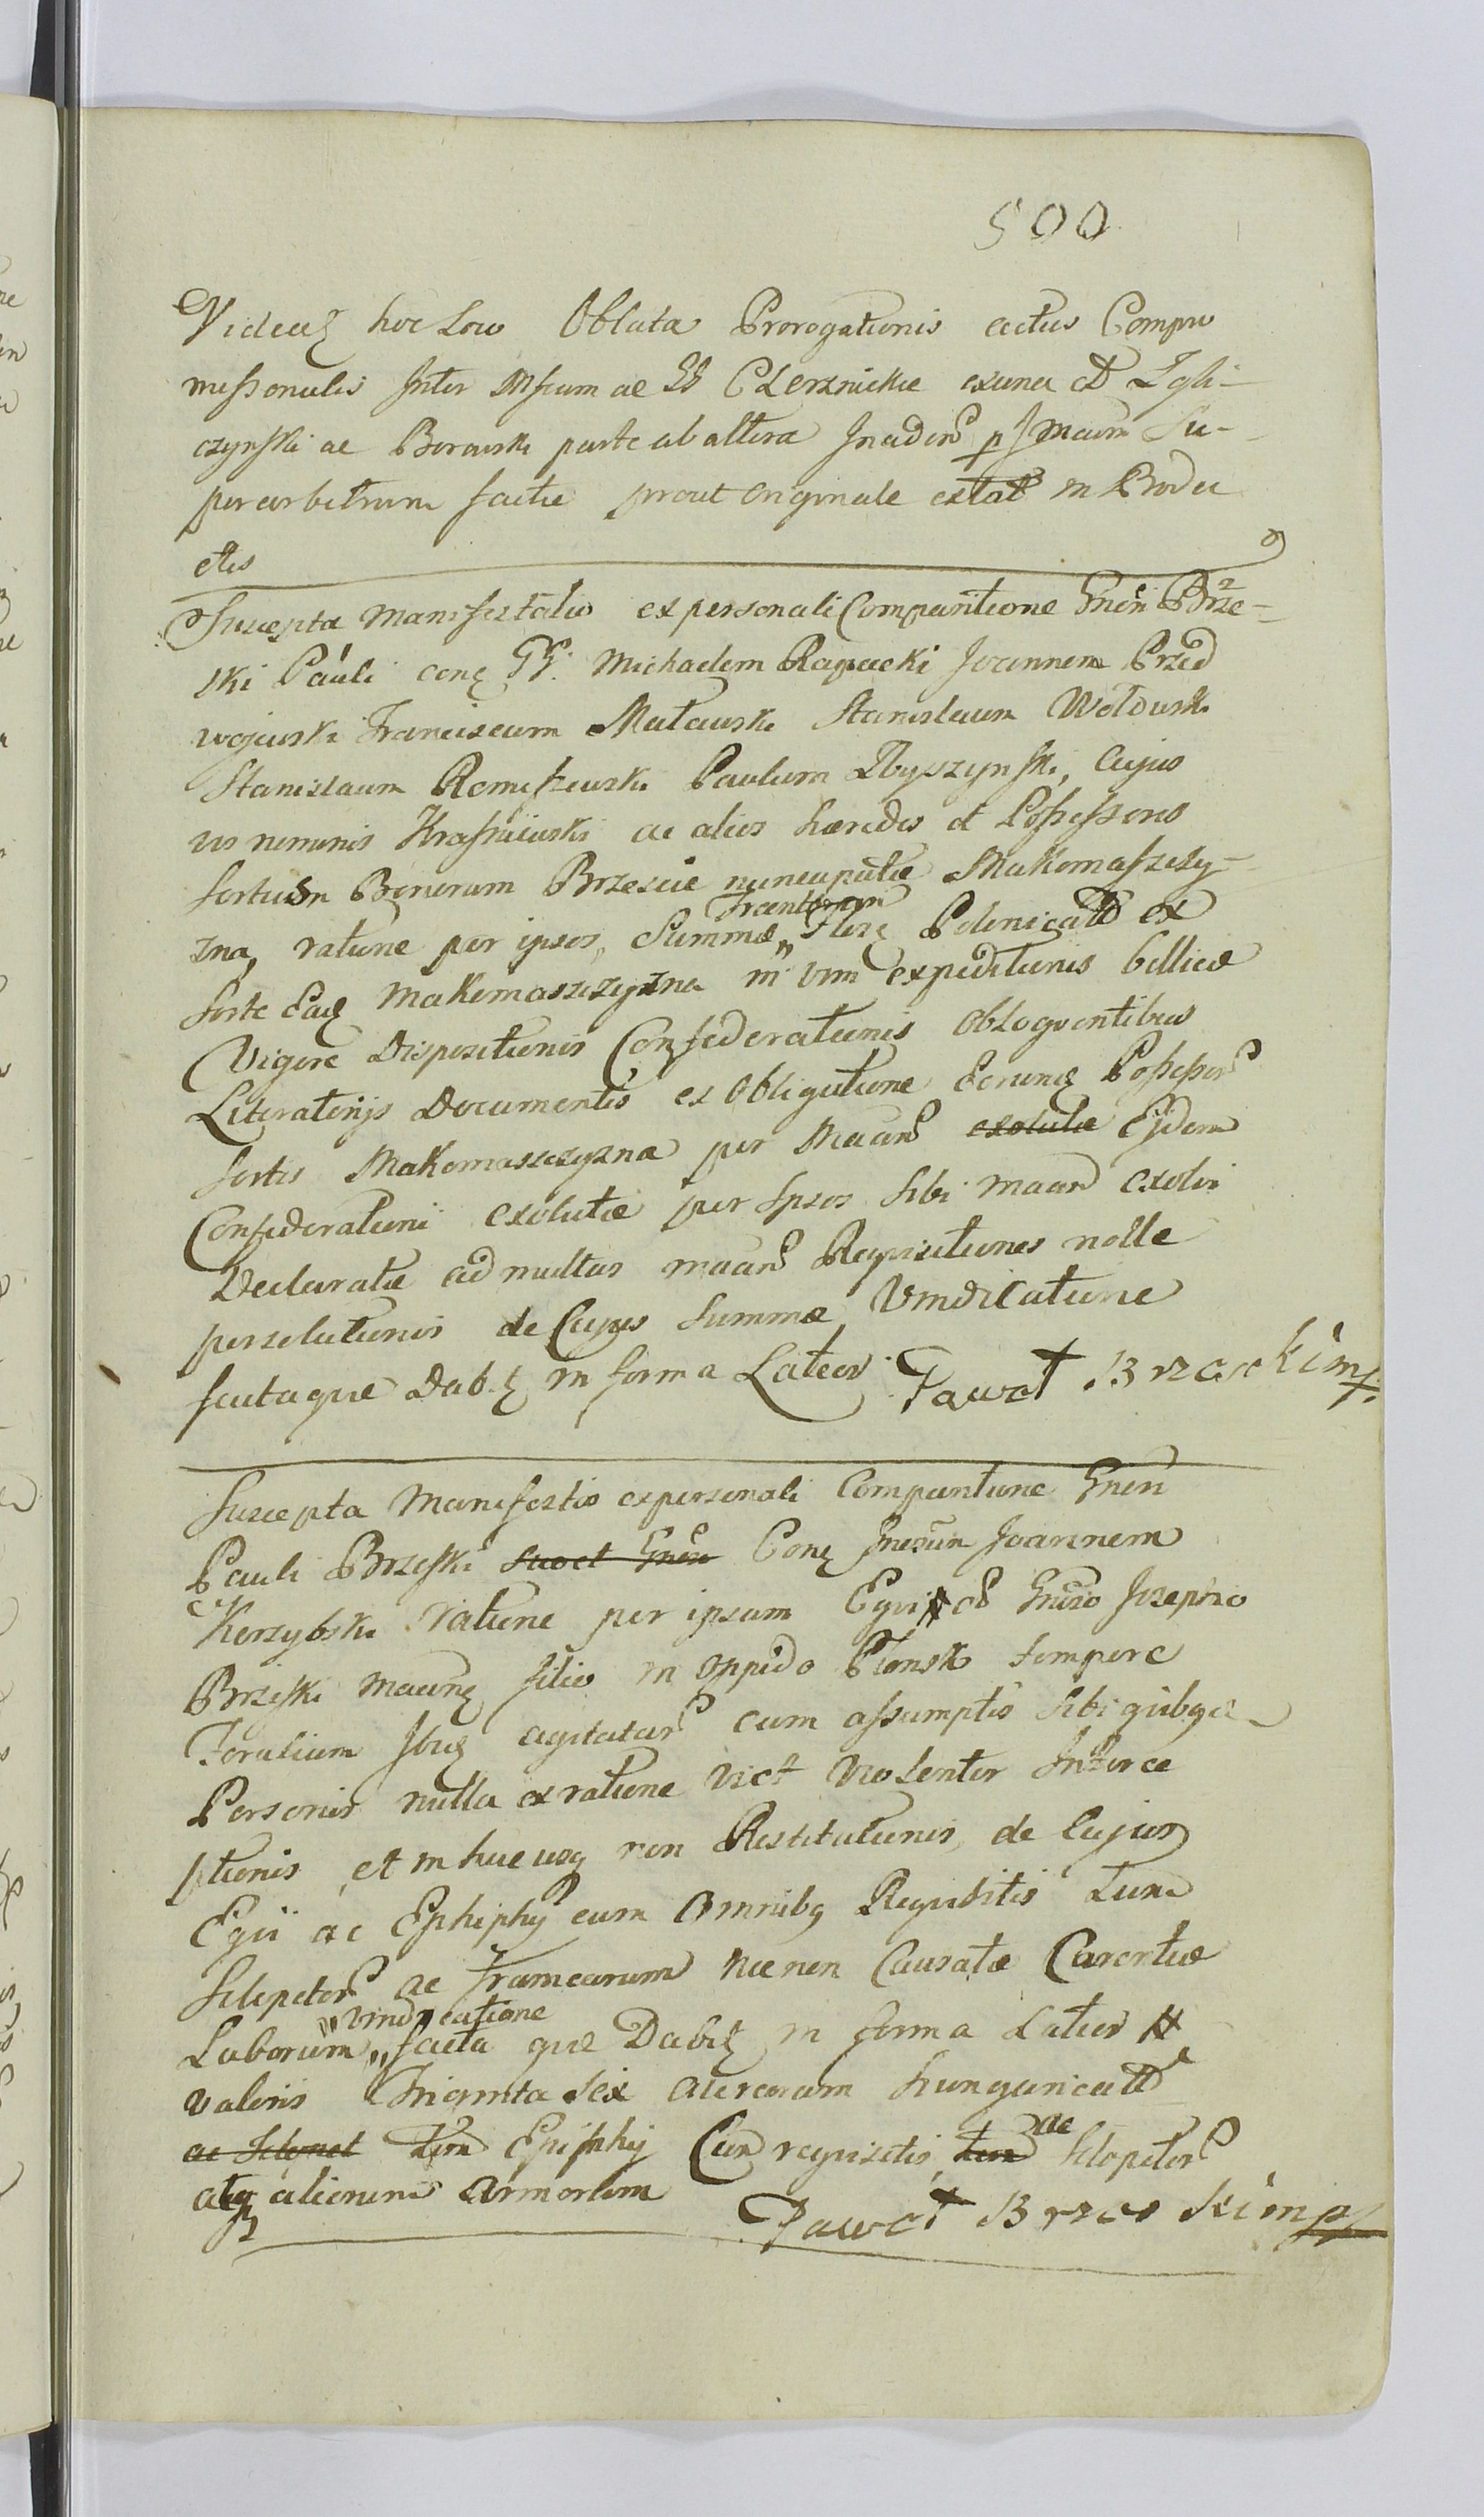 500
Videatz hoc Loco Oblata Prorogationis actus Compro
missionalis Inter Mficum ac GG Czerznickie exuna et Igli-
czynski ac Borowski parte ab altera Inadem p Jmaum Su-
perarbitrum factae prout Originale extat in Produ
ctis
Suscepta Manifestatio ex personali Comparitione Gnen Brze-
ski Pauli conq GG. Michaelem Rapacki Joannem Przed
wojewski Franciscum Matawski Stanislaum Woldwski
Stanislaum Remiszewski Paulum Zbyszynski, Cujus
vis nominis Krassniewski ac alios haeredes et Possessores
Sortium Bonorum Brzescie nuncupatae Makomaszczy-
zna, ratione per ipsos, Summae „Trcentorum Flore Polonicali ex
Sorte Eaq Makomaszczyzna in vim expeditionis bellicae
Vigore Dispositionis Confederationis Obloquentibus
Literatorijs Documentis ex Obligatione Eorunq Possessor
Sortis Makomaszczyzna per Maum exolutae Ejdem
Confederationi exolutae per Ipsos Sibi Maum exolvi
Declaratae ad multas maum Requisitiones nolle
persolutionis de Cujus Summae Vindicatione
factaque Dabitz in forma Latiori. Paweł Brzeski mp.
Suscepta Manifestio expersonali Comparitione Gnen
Pauli Brzeski Conq Gnerum Joannem
Korzybski ratione per ipsum Equi Gneroso Josepho
Brzeski Maumq filio in Oppido Płonsk tempore
Foralium Ibiq agitatar cum assumptis Sibi quibq
Personis nulla ex ratione Vict Violenter Interce
ptionis, et in huc usq non Restitutionis, de Cujus
Equi ac Ephiphy cum Omnibq Requisitis tum
Sclopetor ac Framearum necnon Causatae Carentiae
Laborum „vindicatione facta que Dabitz in forma Latiori #
valoris Trigenta Sex Aureorum hungaricali
ac Sclopet tum Epiphy Cum requisitis tum ac Sclopetor
atq aliorum Armorum Paweł Brzeski mp